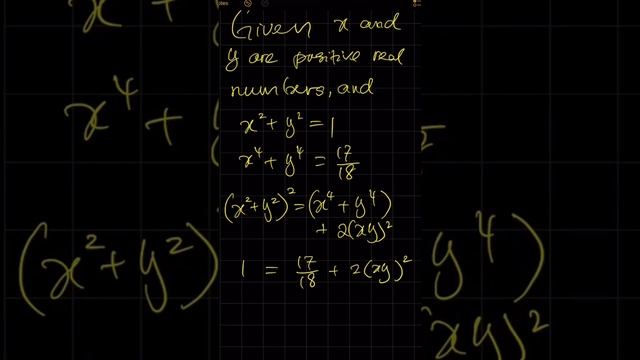 Given x and
y are positive real
numbers, and
x² + y² = 1
x⁴ + y⁴ = 17/18
(x² + y²)² = (x⁴ + y⁴)
+ 2(xy)²
1 = 17/18 + 2(xy)²